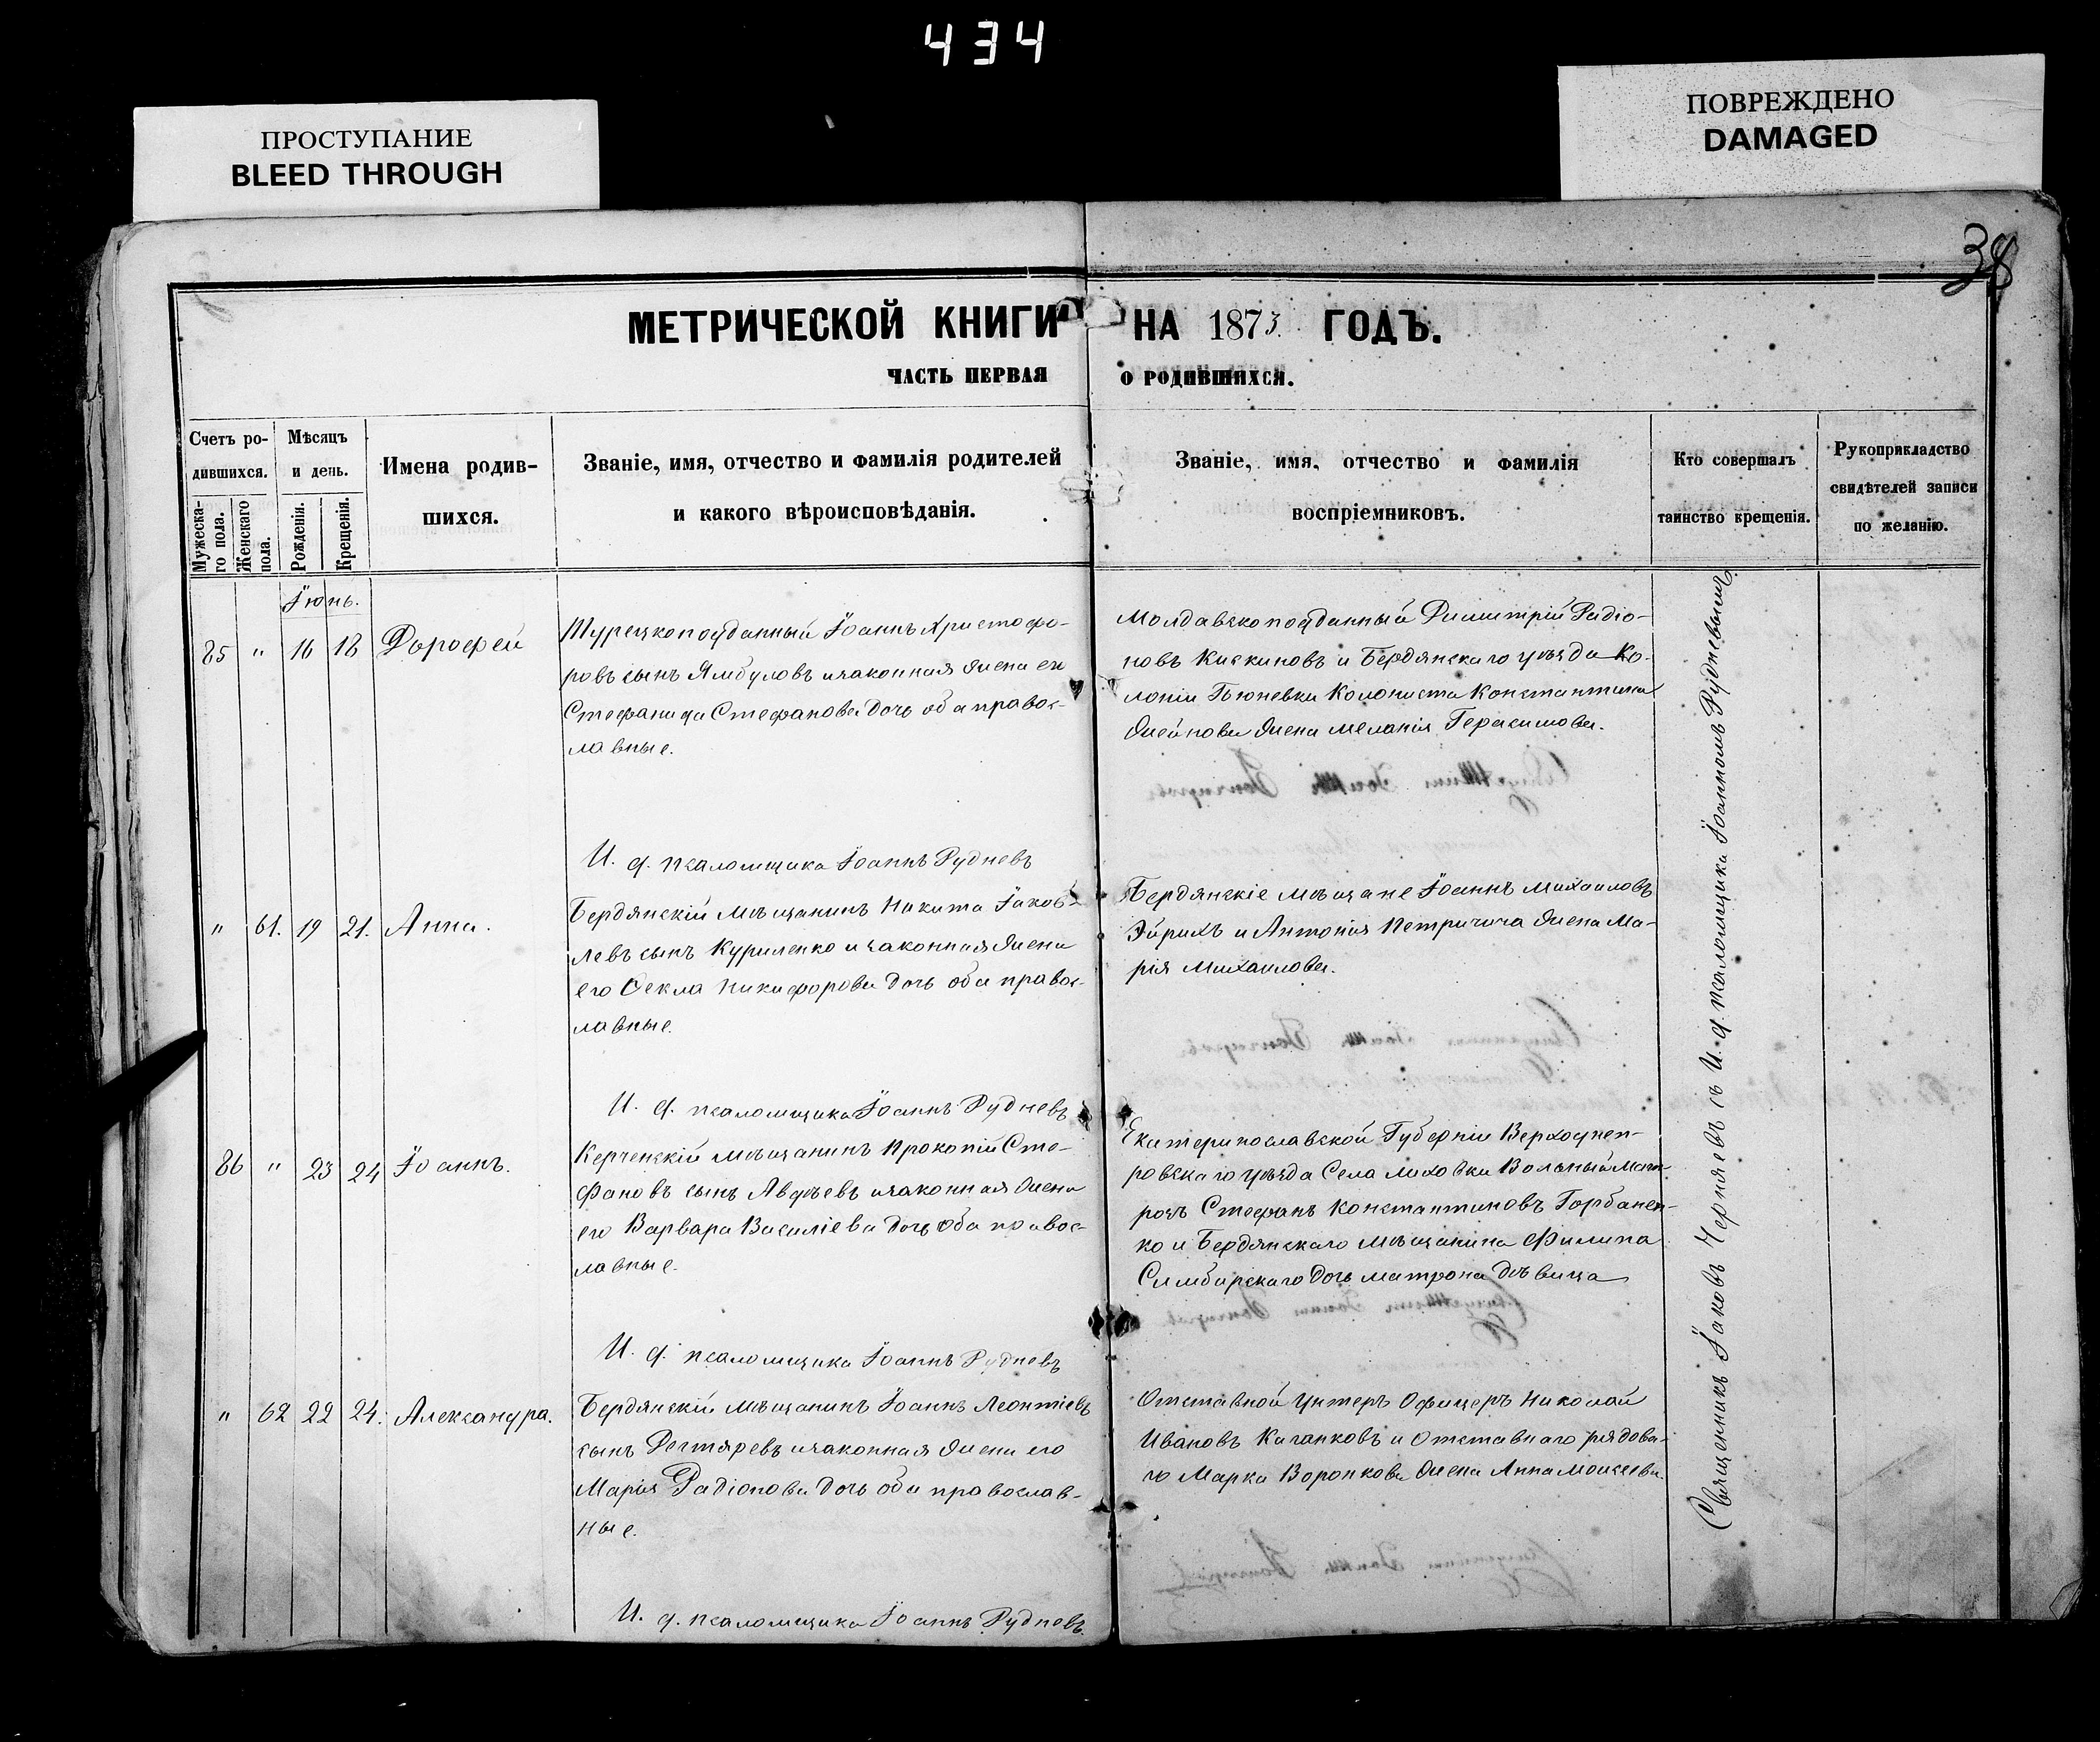 434
ПРОСТУПАНИЕ
BLEED THROUGH
ПОВРЕЖДЕНО
DAMAGED
38
МЕТРИЧЕСКОЙ КНИГИ НА 1873 ГОДЪ.
ЧАСТЬ ПЕРВАЯ О РОДИВШИХСЯ.
Счетъ ро-
дившихся.
Мужеска-
го пола.
Женскаго
пола.
Мѣсяцъ
и день.
Рожденія.
Крещенія.
Имена родив-
шихся.
Званіе, имя, отчество и фамилія родителей
и какого вѣроисповѣданія.
Званіе, имя, отчество и фамилія
воспріемниковъ.
Кто совершалъ
таинство крещенія.
Рукоприкладство
свидѣтелей записи
по желанію.
Іюнь.
85 " 16 18 Дорофей
Турецкоподданный Іоаннъ Христофо-
ровъ сынъ Ямбуловъ изаконная жена ею
Стефанида Стефанова дочь оба правос-
лавные.
Молдавскоподданный Димитрій Радіо-
новъ Кискиновъ и Бердянскаго уѣзда Ко-
лоніи Гюневки колониста Константина
жена Меланія Герасимова.
И. д. псаломщика Іоаннъ Рудневъ
" 61. 19 21. Анна.
Бердянскій мѣщанинъ Никита Іаков-
левъ сынъ Куриленко изаконная жена
его Ѳекла Никифорова дочь оба правос-
лавные.
Бердянскіе мѣщане Іоаннъ Михаиловъ
Эйрихъ и Антонія Петричича жена Ма-
рія Михаилова.
И. д. псаломщика Іоаннъ Рудневъ
86 " 23 24 Іоаннъ.
Керченскій мѣщанинъ Прокопій Сте-
фановъ сынъ Авдѣевъ изаконная жена
его Варвара Василіева дочь оба правос-
лавные.
Екатеринославской Губерніи Верходнеп-
ровскаго уѣзда Села Лиховки Вольный мат-
розъ Стефанъ Константиновъ Горбанен-
ко и Бердянскаго мѣщанина Филипа
Симбирскаго дочь Матрона дѣвица
И. д. псаломщика Іоаннъ Рудневъ
" 62 22 24. Александра.
Бердянскій мѣщанинъ Іоаннъ Леонтіевъ
сынъ Дегтяревъ изаконная жена его
Марія Радіонова дочь оба православ-
ные.
Отставной Унтеръ Офицеръ Николай
Ивановъ Каганковъ и Отставнаго рядова-
го Марка Воронкова жена Анна Моисеева.
И. д. псаломщика Іоаннъ Рудневъ.
Священникъ Іаковъ Чернявъ съ И. д. псаломщика Іоанномъ Рудневымъ.